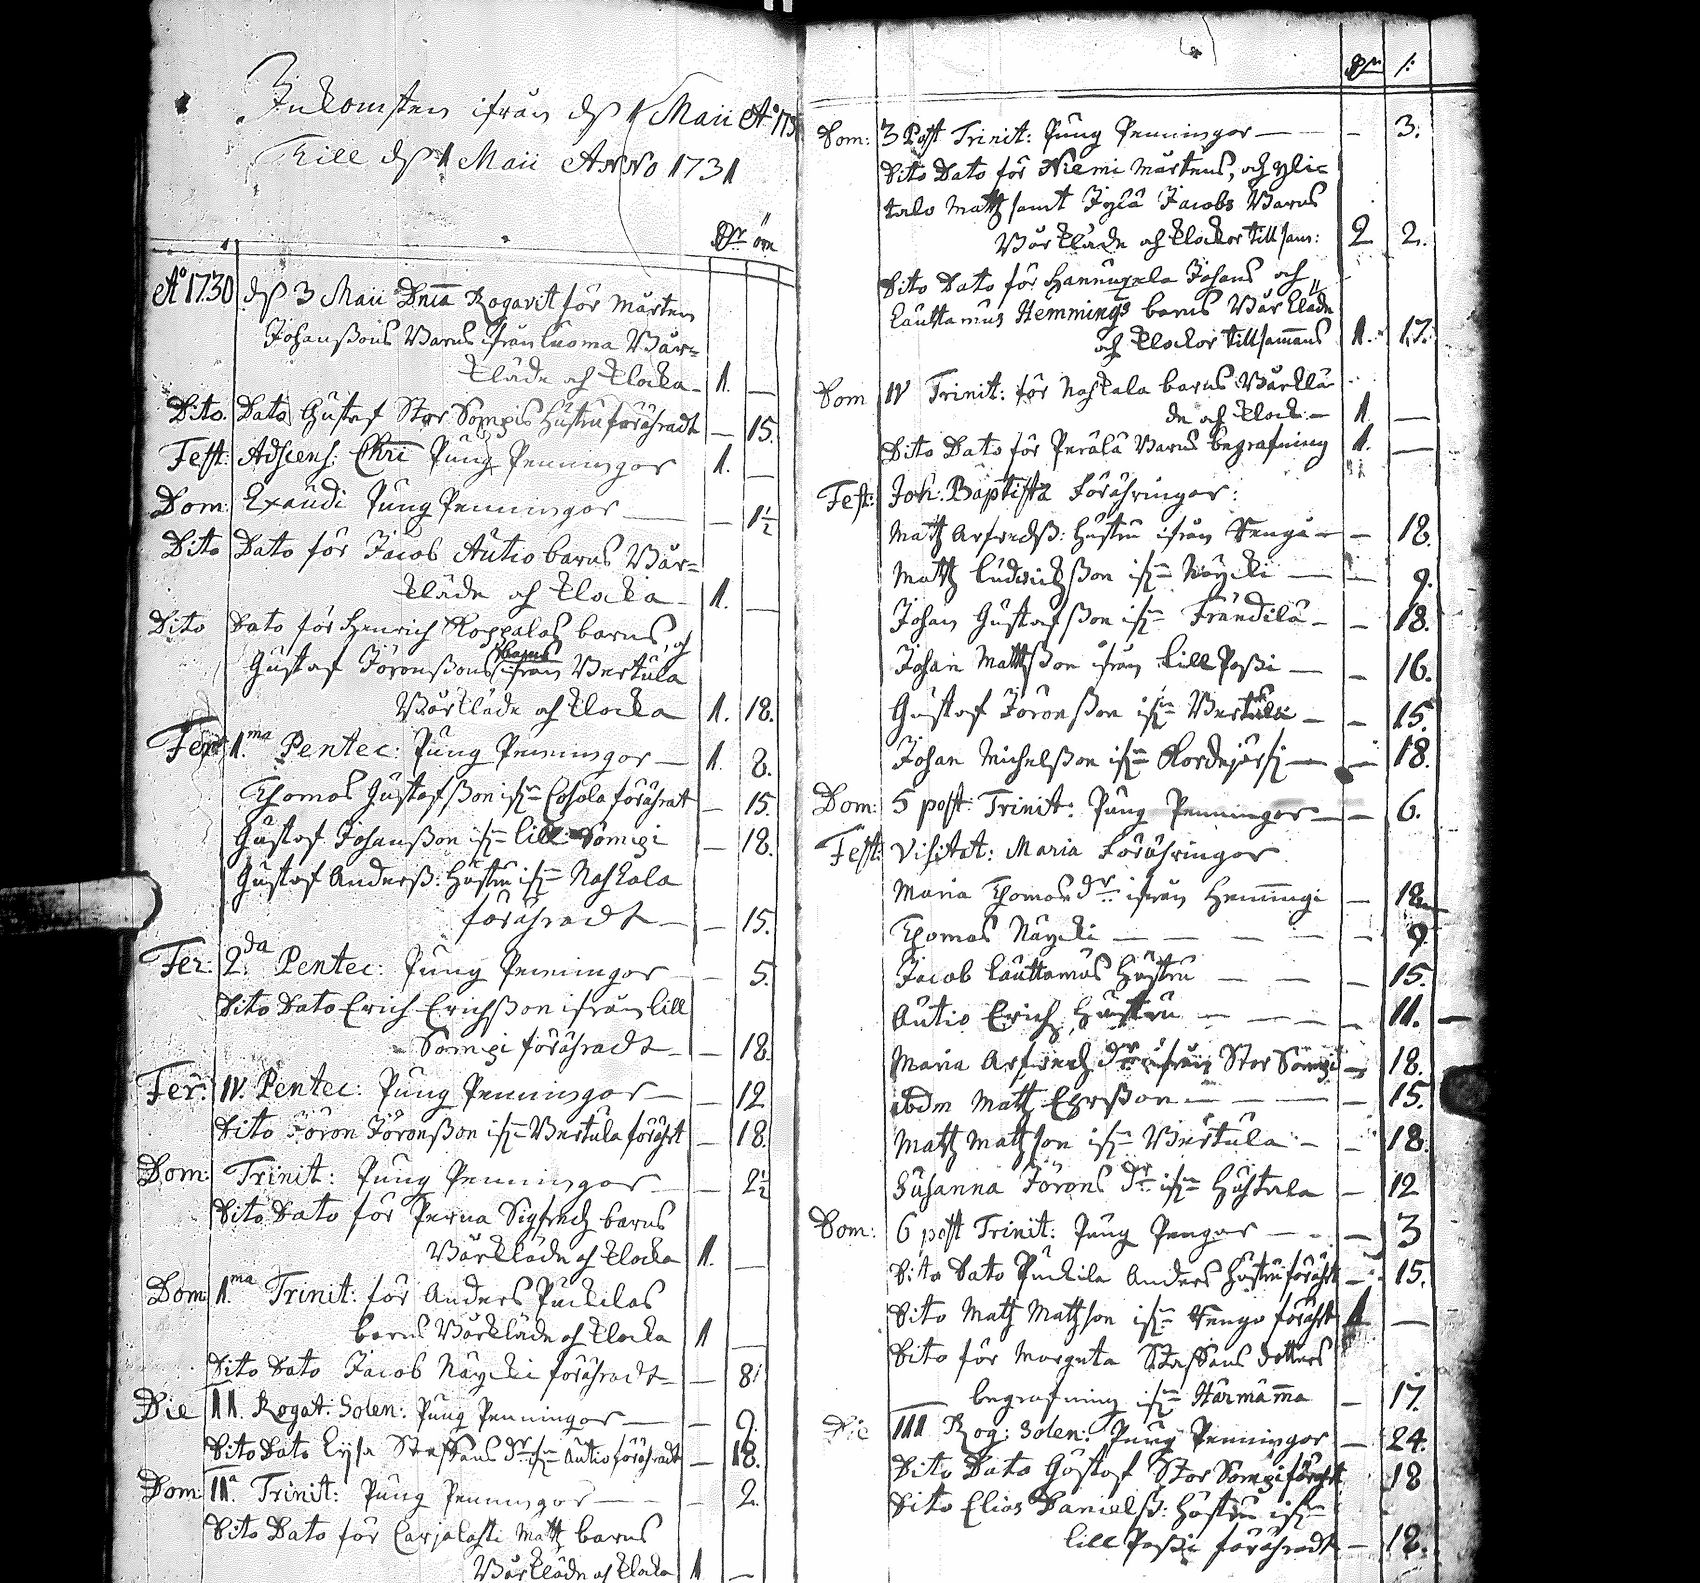 Inkomsten ifrån dß 1 Maii A:o 173
Till dß 1 Maii Anno 1731
Dr ör
A:o 1730 dß 3 Maii Dnica Rogavit för Mårten
Johanßons Barns ifrån Luoma Bår-
kläde och klocka 1. —
Dito Dato Gustaf Stor Sompis Hustru förähradt — 15.
Fest: Adscens: Chri Pung Penningar 1. —
Dom: Exaudi Pung Penningar — — 1½
Dito Dato för Jacob Autio barns Bår-
kläde och klocka 1. —
Dito Dato för Henrich Koppalas barns, och
barns
Gustaf Joronßons ifrån Vertula
Bårkläde och klocka 1. 18.
Fer: 1.ma Pentec: Pung Penningar — 1. 8.
Thomas Gustafßon ifn Cosola förährat — 15.
Gustaf Johanßon ifn Lill Sompi — 18.
Gustaf Anderß: Hustru ifn Naskala
förähradt — — 15.
Fer: 2.da Pentec: Pung Penningar — 5.
Dito Dato Erich Erichßon ifrån Lill
Sompi förähradt — — 18.
Fer: IV. Pentec: Pung Penningar — — 12
Dito Jöron Jöronßon ifn Vertula förährt — 18.
Dom: Trinit: Pung Penningar — 2½
Dito Dato för Perna Sigfreds barns
Bårkläde och klocka 1. —
Dom 1.ma Trinit: för Anders Puckilas
barns Bårkläde och klocka 1 —
Dito Dato Jacob Näycki förähradt — — 8.
Die II. Rogat: Solen: Pung Penningar — — 9.
Dito Dato Lysa Staffans dr ifn Autio förähradt — 18.
Dom II.a Trinit: Pung Penningar — — 2.
Dito Dato för Carjalahti Matz barns
Bårkläde och klocka 1 —
Dr /:
Dom: 3 Post Trinit: Pung Penningar — — 3.
Dito Dato för Niemi Mårtens, och Yli-
talo Matz samt Jylä Jacobs Barns
Bårkläde och klockor tillsam: 2 2.
Dito Dato för Hannuxela Johans och
Lauttamus Hemmings barns Bårkläde
och klockor tillsammans 1. 17.
Dom IV Trinit: för Naskala barns Bårklä-
de och klock. — 1. —
Dito Dato för Perälä Barns begrafning 1. —
Fest: Joh: Baptistæ Förähringar:
Matz Arfvedß: Hustru ifrån Tenga — — 18.
Matz Ludvichßon ifn Näycki — — 9.
Johan Gustafßon ifn Frändilä — — 18.
Johan Mattßon ifrån Lill Passi — — 16.
Gustaf Joronßon ifn Vertula — — 15.
Johan Michelßon ifn Kordejärfi — — 18.
Dom: 5 post: Trinit: Pung Penningar — — 6.
Fest: Visitat: Maria Förähringar
Maria Thomas dr ifrån Hemmingi — 18
Thomas Näycki — — — — 9.
Jacob Lauttamus Hustru — — — 15.
Autio Erich Hustru — — — — 11.
Maria Arfvedz dr ifrån Stor Sompi — 18.
ibdm Matz Ehrsßon — — — 15.
Matz Matzson ifn Vertula — — 18.
Susanna Jörons dr ifn Huhtala — 12
Dom: 6 post Trinit: Pung Pengar — — 3
Dito Dato Puckila Anders Hustru förährt — 15.
Dito Matz Matzson ifn Tengo förährt 1 —
Dito för Margreta Staffans dotters
begrafning ifn Härmämma — 17.
Die III Rog: Solen: Pung Penningar — 24.
Dito Dato Göstaf Stor Sompi förährt 18
Dito Elias Danielß: Hustru ifn
Lill Passi förähradt — 18.